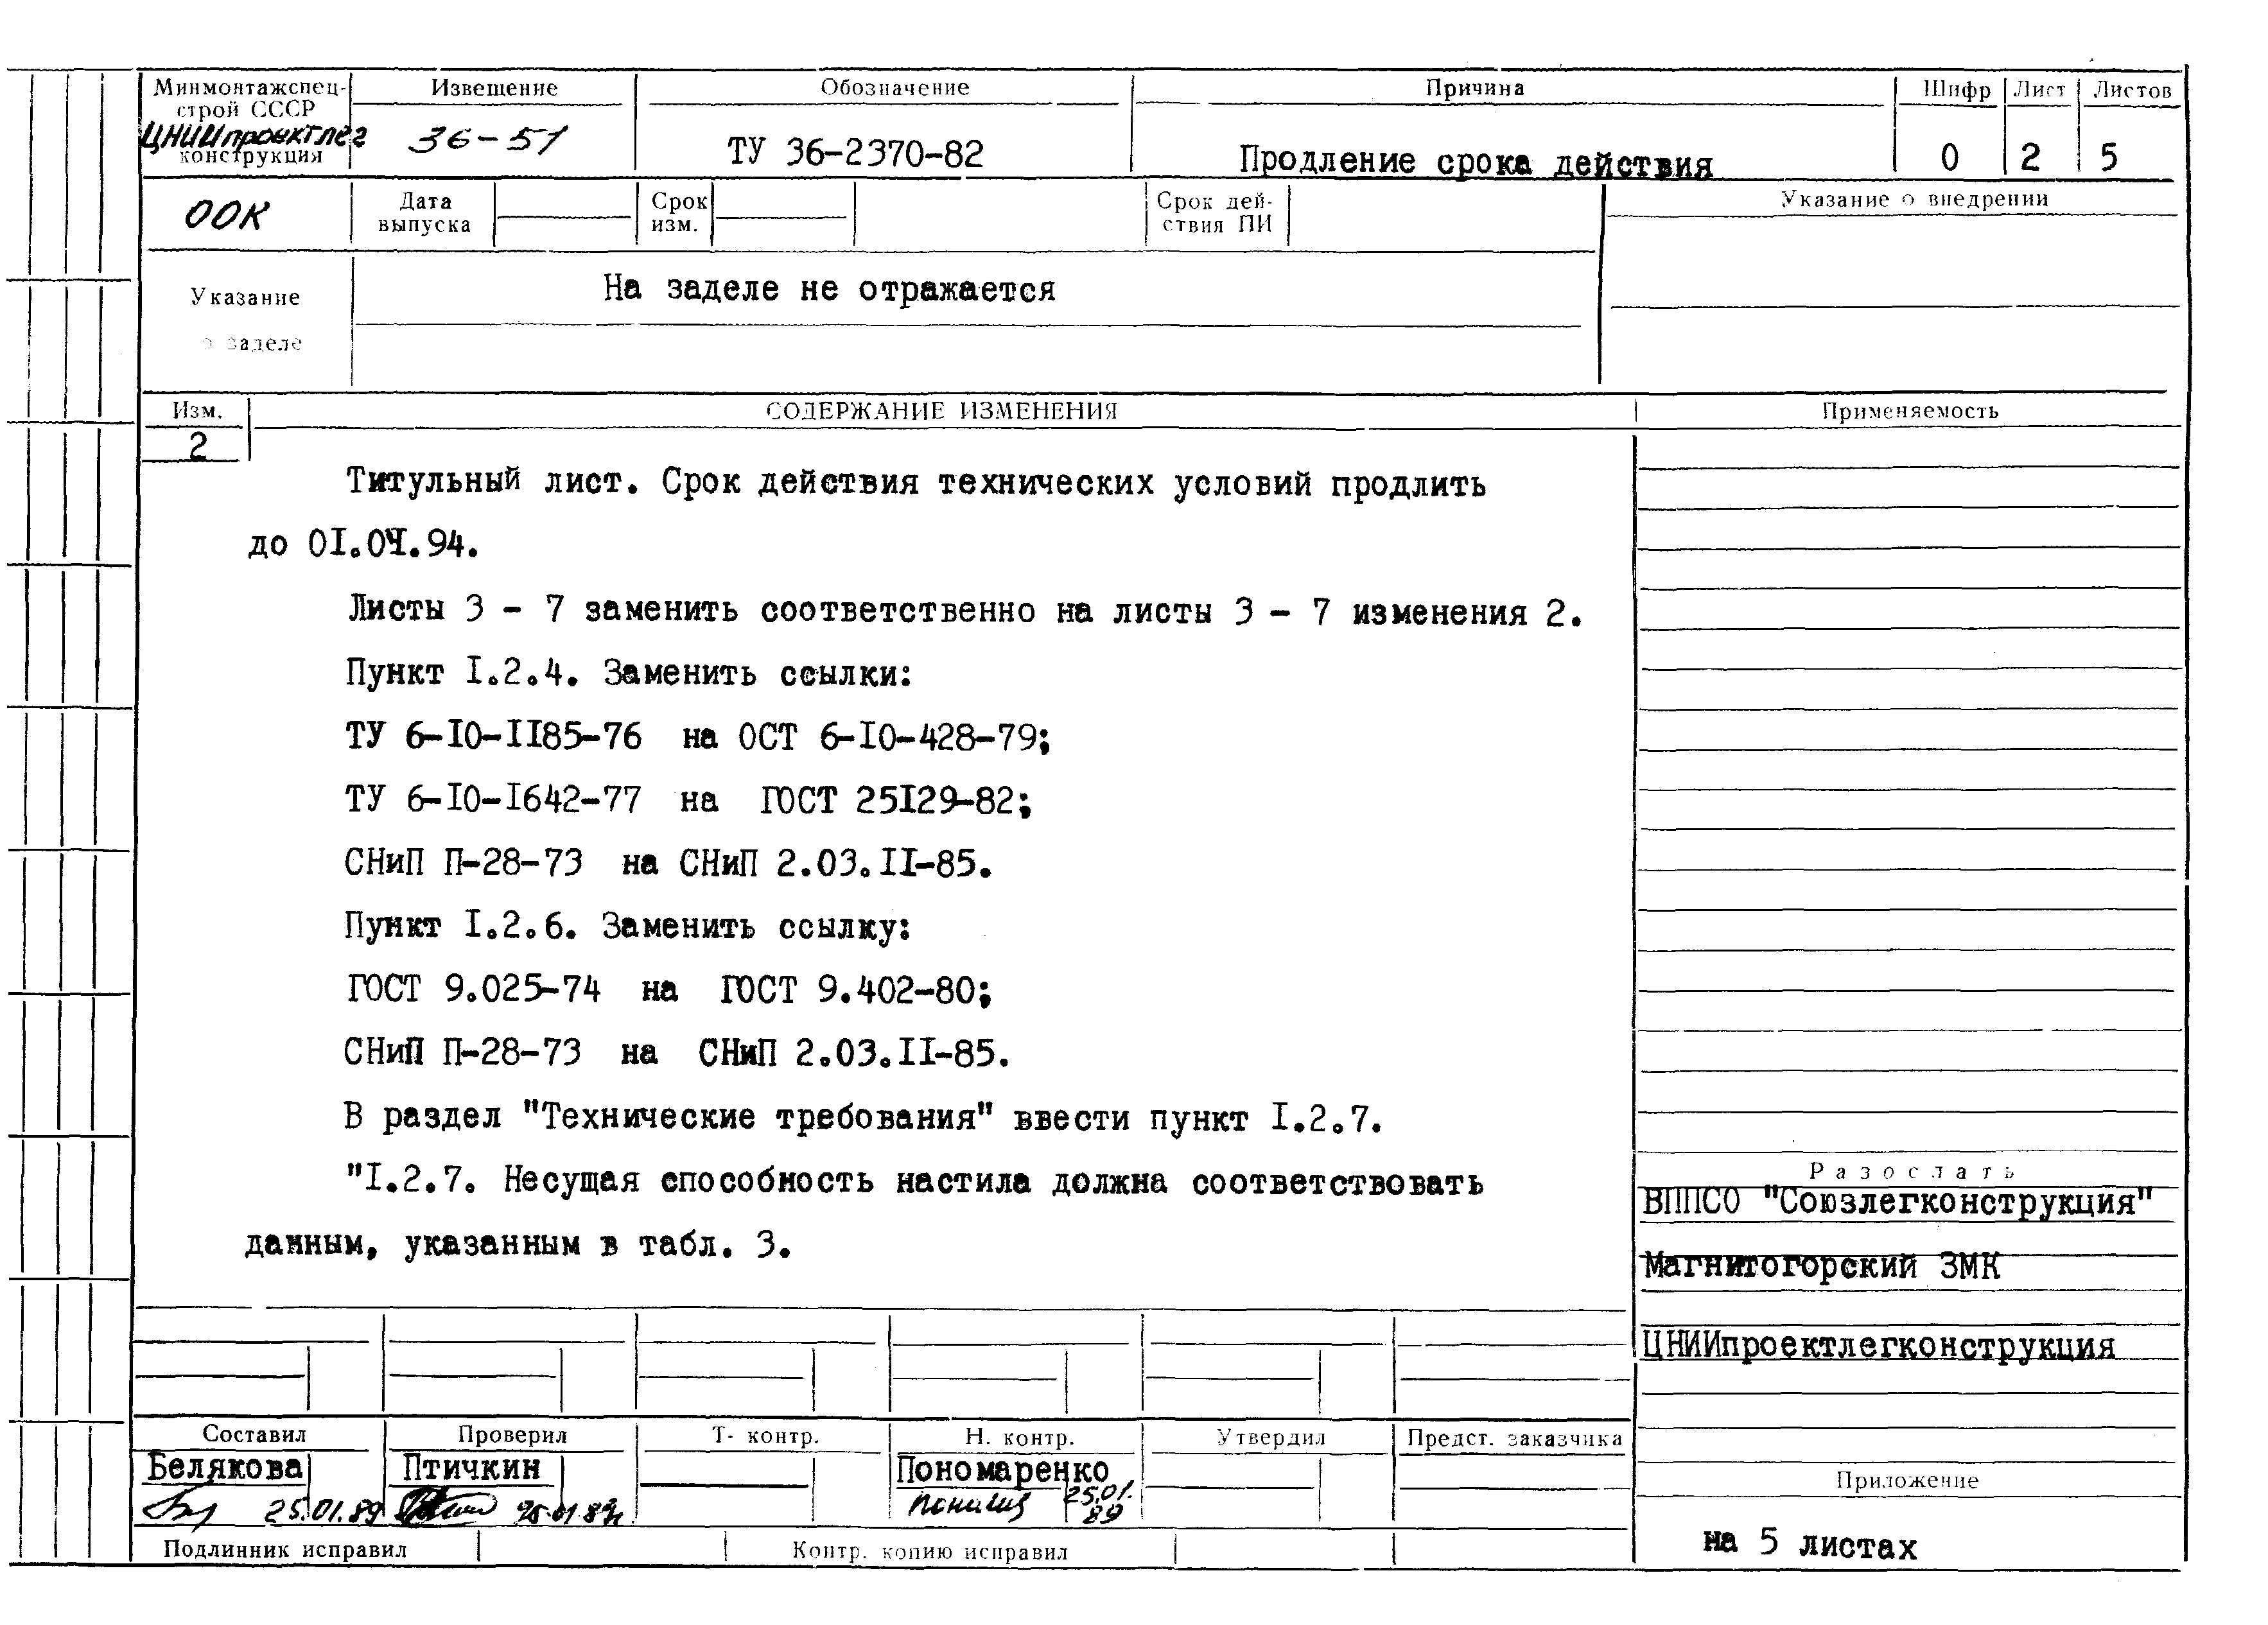 Минмонтажспец-
строй СССР
ЦНИИпроектлег
конструкция
Извещение
36-51
Обозначение
ТУ 36-2370-82
Причина
Продление срока действия
Шифр Лист Листов
0 2 5
ООК
Дата
выпуска
Срок
изм.
Срок дей-
ствия ПИ
Указание о внедрении
Указание
о заделе
На заделе не отражается
Изм.
2
СОДЕРЖАНИЕ ИЗМЕНЕНИЯ
Применяемость
Титульный лист. Срок действия технических условий продлить
до 0I.04.94.
Листы 3 - 7 заменить соответственно на листы 3 - 7 изменения 2.
Пункт I.2.4. Заменить ссылки:
ТУ 6-I0-II85-76 на ОСТ 6-I0-428-79;
ТУ 6-I0-I642-77 на ГОСТ 25I29-82;
СНиП П-28-73 на СНиП 2.03.II-85.
Пункт I.2.6. Заменить ссылку:
ГОСТ 9.025-74 на ГОСТ 9.402-80;
СНиП П-28-73 на СНиП 2.03.II-85.
В раздел "Технические требования" ввести пункт I.2.7.
"I.2.7. Несущая способность настила должна соответствовать
данным, указанным в табл. 3.
Разослать
ВППСО "Союзлегконструкция"
Магнитогорский ЗМК
ЦНИИпроектлегконструкция
Составил Проверил Т- контр. Н. контр. Утвердил Предст. заказчика
Белякова Птичкин Пономаренко
25.01.89 25.01.89 25.01.
89
Приложение
на 5 листах
Подлинник исправил Контр. копию исправил